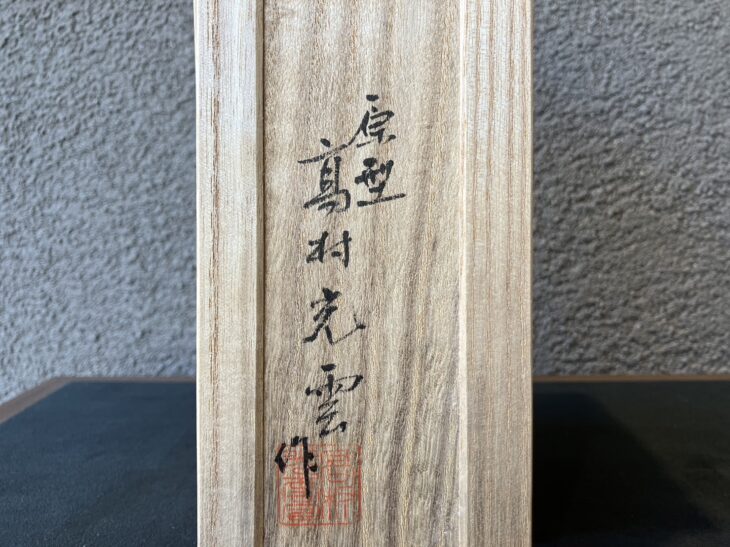 原型
高村光雲
作